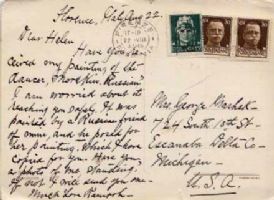 Florence, Italy Aug 22.
Dear Helen
Have you re-
ceived my painting of the
dancer, Russian?
I am worried about its
reaching you safely. It was
painted by a Russian friend
of mine, and he posed for
her painting. Which I have
copied for you. Have you
a photo of me standing.
If not I will send you one
Much Love
Mrs. George
724 South 10th St-
Escanaba Delta Co-
Michigan
U.S.A.